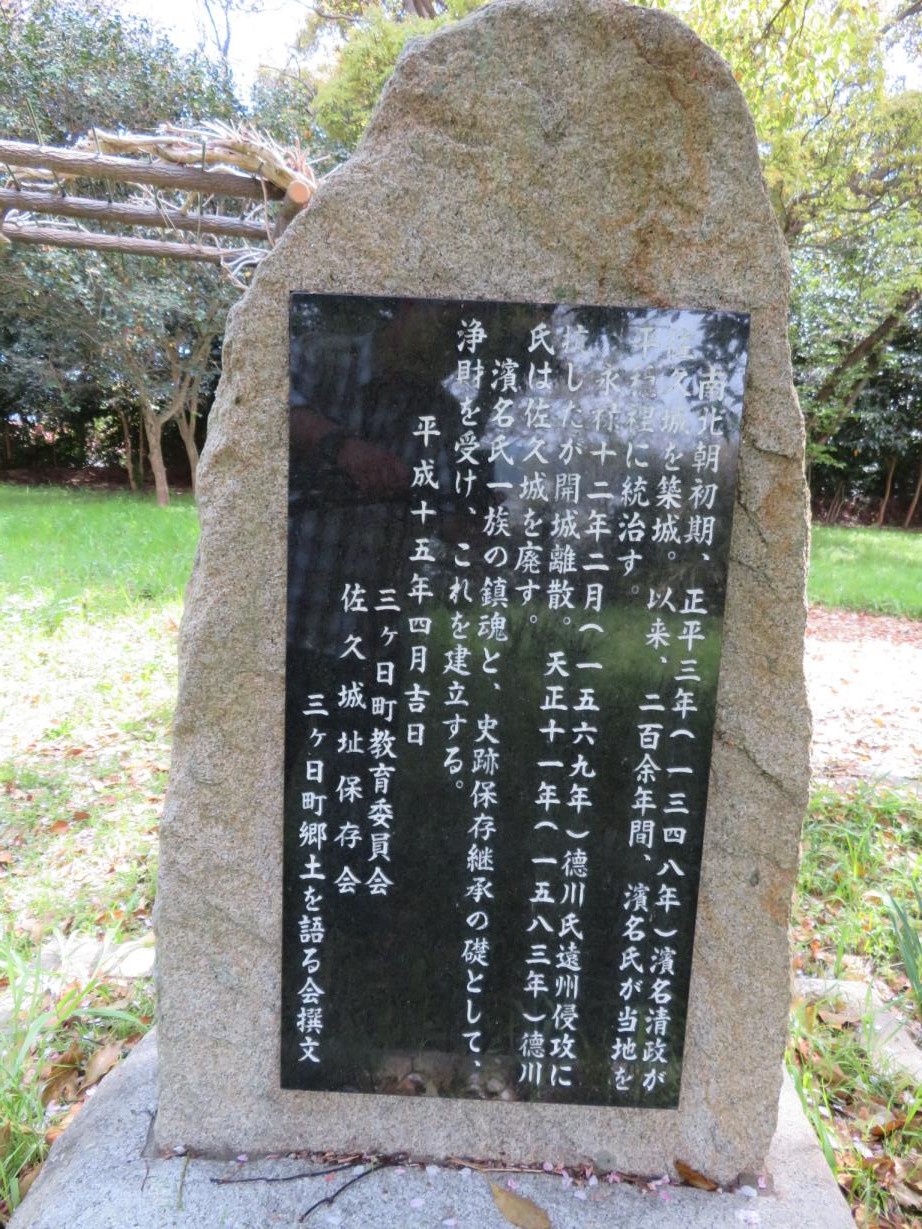 南北朝初期、正平三年(一三四八年)濱名清政が
佐久城を築城。以来、二百余年間、濱名氏が当地を
平穏裡に統治す。
永禄十二年二月(一五六九年)德川氏遠州侵攻に
抗したが開城離散。天正十一年(一五八三年)德川
氏は佐久城を廃す。
濱名氏一族の鎮魂と、史跡保存継承の礎として、
浄財を受け、これを建立する。
平成十五年四月吉日
三ヶ日町教育委員会
佐久城址保存会
三ヶ日町郷土を語る会撰文